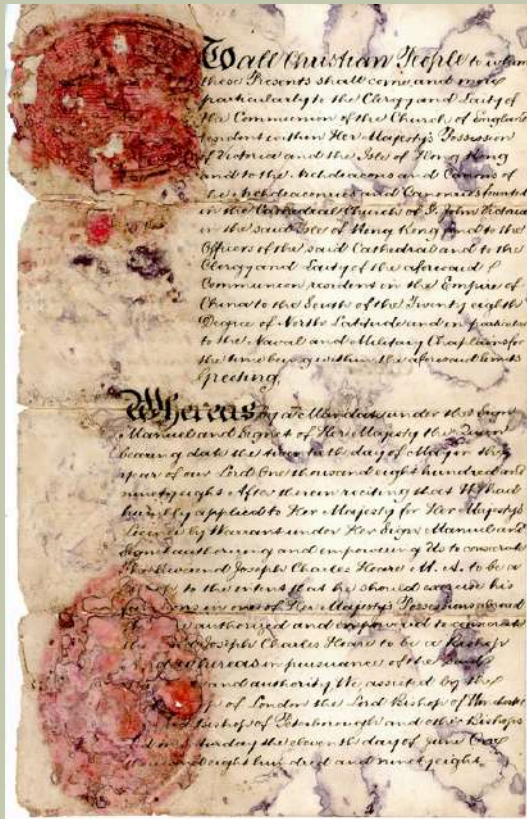 To all Christian People to whom
these Presents shall come and more
particularly to the Clergy and Laity of
the Communion of the Church of England
resident within Her Majesty's Possession
of Victoria and the Isle of Hong Kong
and to the Archdeacons and Canons of
the Archdeaconries and Canonries founded
in the Cathedral Church of St. John Victoria
in the said Isle of Hong Kong and to the
Officers of the said Cathedral and to the
Clergy and Laity of the aforesaid
Communion resident in the Empire of
China to the South of the Twenty eighth
Degree of North Latitude and in particular
to the Naval and Military Chaplains for
the time being within the aforesaid limits
Greeting,
Whereas by a Mandate under the Sign
Manual and Signet of Her Majesty the Queen
bearing date the day of May in the
year of our Lord One thousand eight hundred and
ninety eight After therein reciting that We had
humbly applied to Her Majesty for Her Majesty's
Licence by Warrant under Her Sign Manual and
Signet authorizing and empowering Us to consecrate
The Reverend Joseph Charles Hoare M. A. to be a
to the intent that he should exercise his
in one of Her Majesty's Possessions abroad
authorized and empowered to consecrate
Joseph Charles Hoare to be a Bishop
Whereas in pursuance of the said
and authority, We assisted by the
of London the Lord Bishop of Winchester
Bishop of Peterborough and other Bishops
the eleventh day of June One
eight hundred and ninety eight,